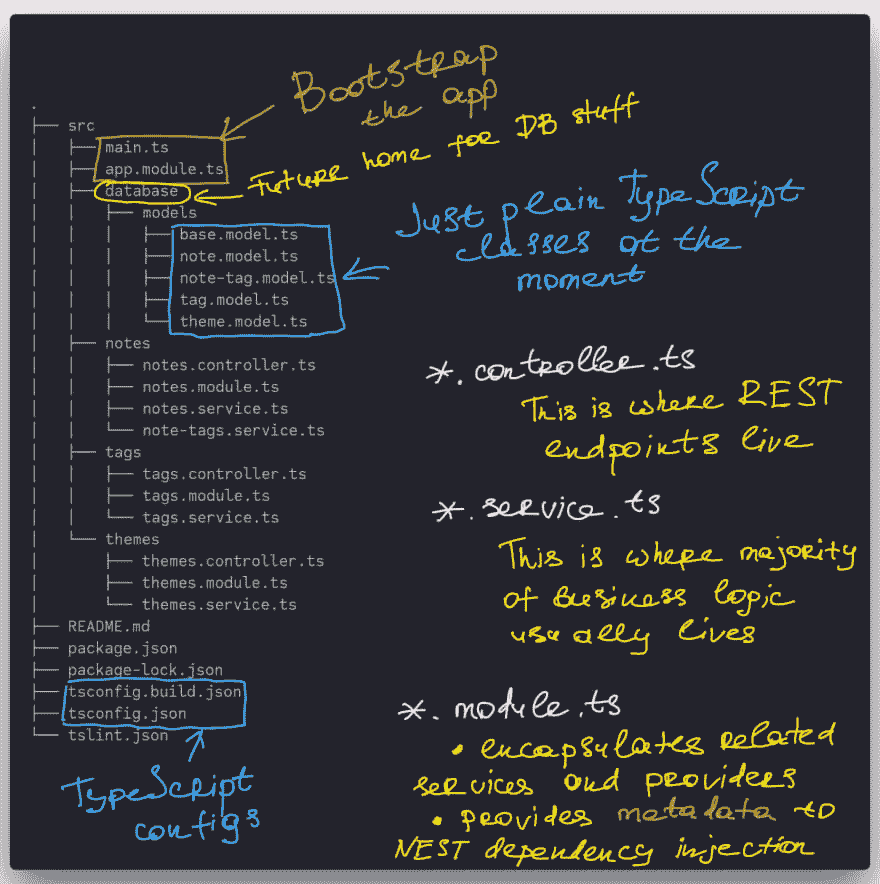 .
├── src
│   ├── main.ts
│   ├── app.module.ts
│   ├── database
│   │   ├── models
│   │   │   ├── base.model.ts
│   │   │   ├── note.model.ts
│   │   │   ├── note-tag.model.ts
│   │   │   ├── tag.model.ts
│   │   │   └── theme.model.ts
│   ├── notes
│   │   ├── notes.controller.ts
│   │   ├── notes.module.ts
│   │   ├── notes.service.ts
│   │   └── note-tags.service.ts
│   ├── tags
│   │   ├── tags.controller.ts
│   │   ├── tags.module.ts
│   │   └── tags.service.ts
│   └── themes
│       ├── themes.controller.ts
│       ├── themes.module.ts
│       └── themes.service.ts
├── README.md
├── package.json
├── package-lock.json
├── tsconfig.build.json
├── tsconfig.json
└── tslint.json
Bootstrap
the app
Future home for DB stuff
Just plain TypeScript
classes at the
moment
*.controller.ts
This is where REST
endpoints live
*.service.ts
This is where majority
of business logic
usually lives
*.module.ts
• encapsulates related
services and providers
• provides metadata to
NEST dependency injection
TypeScript
configs